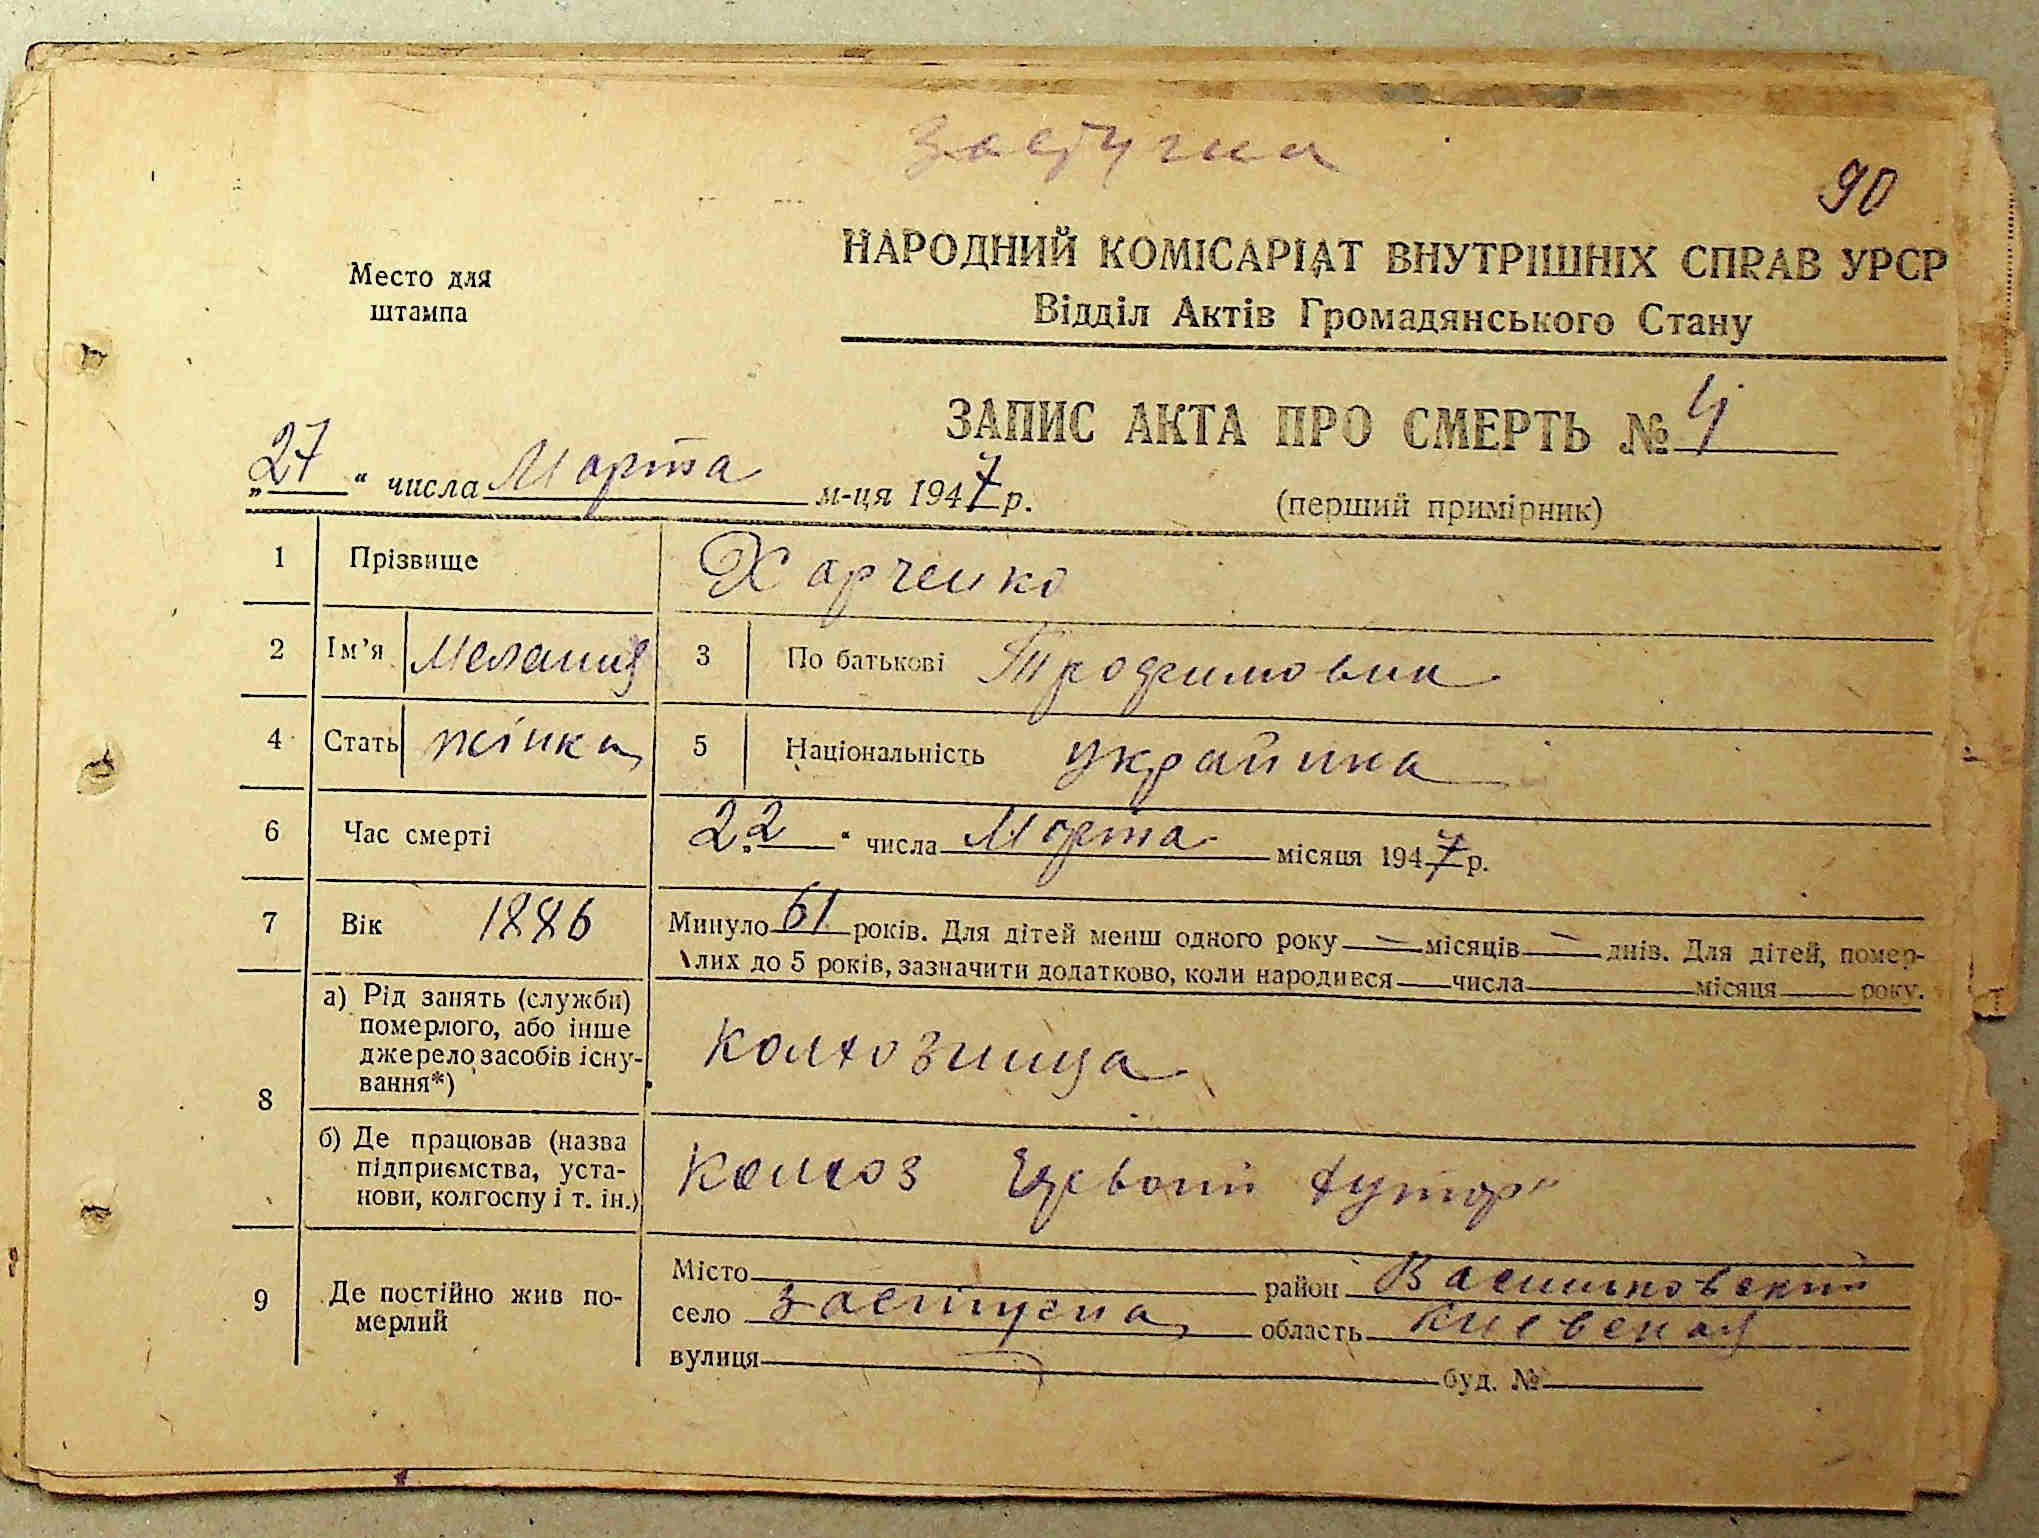 Застугна
90
Место для
штампа
НАРОДНИЙ КОМІСАРІАТ ВНУТРІШНІХ СПРАВ УРСР
Відділ Актів Громадянського Стану
ЗАПИС АКТА ПРО СМЕРТЬ № 4
„27“ числа Марта м-ця 1947 р.
(перший примірник)
1 Прізвище Харченко
2 Ім'я Мелания 3 По батькові Трофимовна
4 Стать жінка 5 Національність українка
6 Час смерті „22“ числа Марта місяця 1947 р.
7 Вік 1886 Минуло 61 років. Для дітей менш одного року — місяців — днів. Для дітей, помер-
лих до 5 років, зазначити додатково, коли народився числа місяця року.
8 а) Рід занять (служби)
померлого, або інше
джерело засобів існу-
вання*)
колхозница
б) Де працював (назва
підприємства, уста-
нови, колгоспу і т. ін.)
колхоз хутор
9 Де постійно жив по-
мерлий
Місто район Васильковский
село Застугна область Киевская
вулиця буд. №